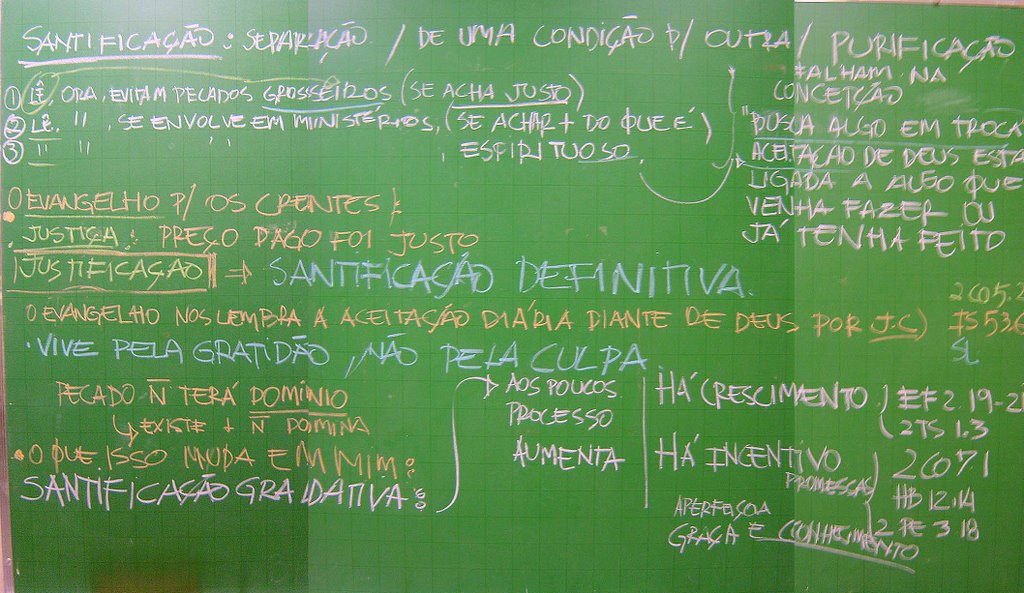 SANTIFICAÇÃO: SEPARAÇÃO / DE UMA CONDIÇÃO P/ OUTRA / PURIFICAÇÃO
① LÊ, ORA, EVITAM PECADOS GROSSEIROS (SE ACHA JUSTO)
② LÊ, " , SE ENVOLVE EM MINISTÉRIOS, (SE ACHAR + DO QUE É)
③ " " " , ESPIRITUOSO.
FALHAM NA
CONCEPÇÃO
"BUSCA ALGO EM TROCA
ACEITAÇÃO DE DEUS ESTA
LIGADA A ALGO QUE
VENHA FAZER OU
JÁ TENHA FEITO
O EVANGELHO P/ OS CRENTES:
. JUSTIÇA: PREÇO PAGO FOI JUSTO
JUSTIFICAÇÃO ⇒ SANTIFICAÇÃO DEFINITIVA.
O EVANGELHO NOS LEMBRA A ACEITAÇÃO DIÁRIA DIANTE DE DEUS POR J.C)
2CO5.2
IS 53.6
SL
· VIVE PELA GRATIDÃO, NÃO PELA CULPA
PECADO N̄ TERÁ DOMÍNIO
↳ EXISTE + N̄ DOMINA
• O QUE ISSO MUDA EM MIM?
SANTIFICAÇÃO GRADATIVA:
→ AOS POUCOS
PROCESSO
AUMENTA
HÁ CRESCIMENTO
EF 2.19-2
2TS 1.3
HÁ INCENTIVO
PROMESSAS
2CO7.1
HB 12.14
2 PE 3 18
APERFEIÇOA
GRAÇA E CONHECIMENTO